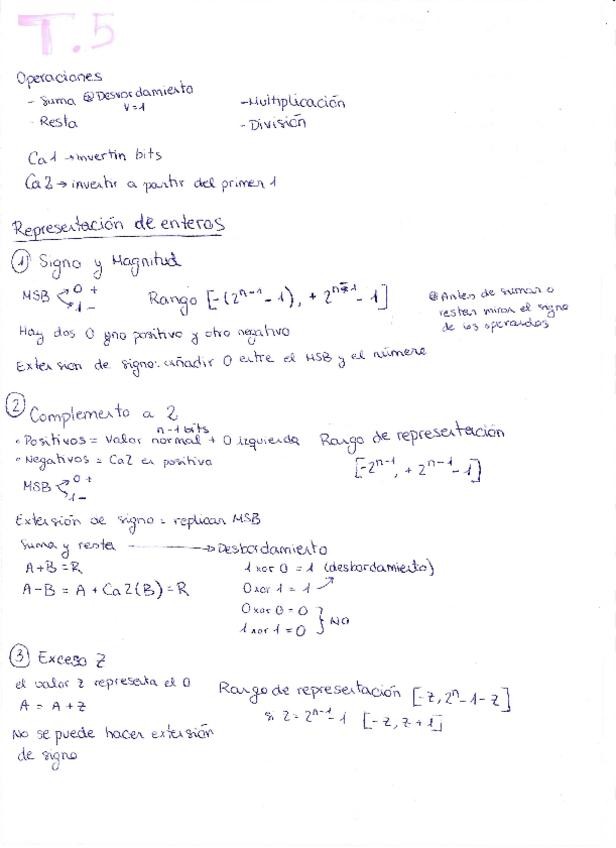 T.5
Operaciones
- Suma @Desbordamiento
V=1
- Multiplicación
- Resta
- División
Ca1 → invertir bits
Ca2 → invertir a partir del primer 1
Representación de enteros
① Signo y Magnitud
MSB < 0 +
1 -
Rango [-(2^n-1 - 1), + 2^n-1 - 1]
@Antes de sumar o
restar mirar el signo
de los operandos
Hay dos 0 uno positivo y otro negativo
Extension de signo: añadir 0 entre el MSB y el número
② Complemento a 2
n-1 bits
• Positivos = Valor normal + 0 izquierda
Rango de representación
• Negativos = Ca2 en positivo
[-2^n-1, + 2^n-1 - 1]
MSB < 0 +
1 -
Extensión de signo = replicar MSB
Suma y resta → Desbordamiento
A+B = R
1 xor 0 = 1 (desbordamiento)
A-B = A + Ca2(B) = R
0 xor 1 = 1
0 xor 0 = 0
1 xor 1 = 0 } NO
③ Exceso Z
el valor z representa el 0
Rango de representación [-z, 2^n - 1 - z]
A = A + z
si z = 2^n-1 - 1 [-z, z + 1]
No se puede hacer extensión
de signo